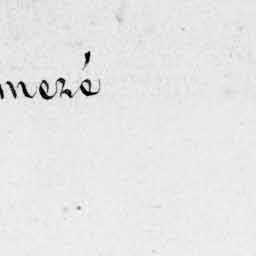 mezé